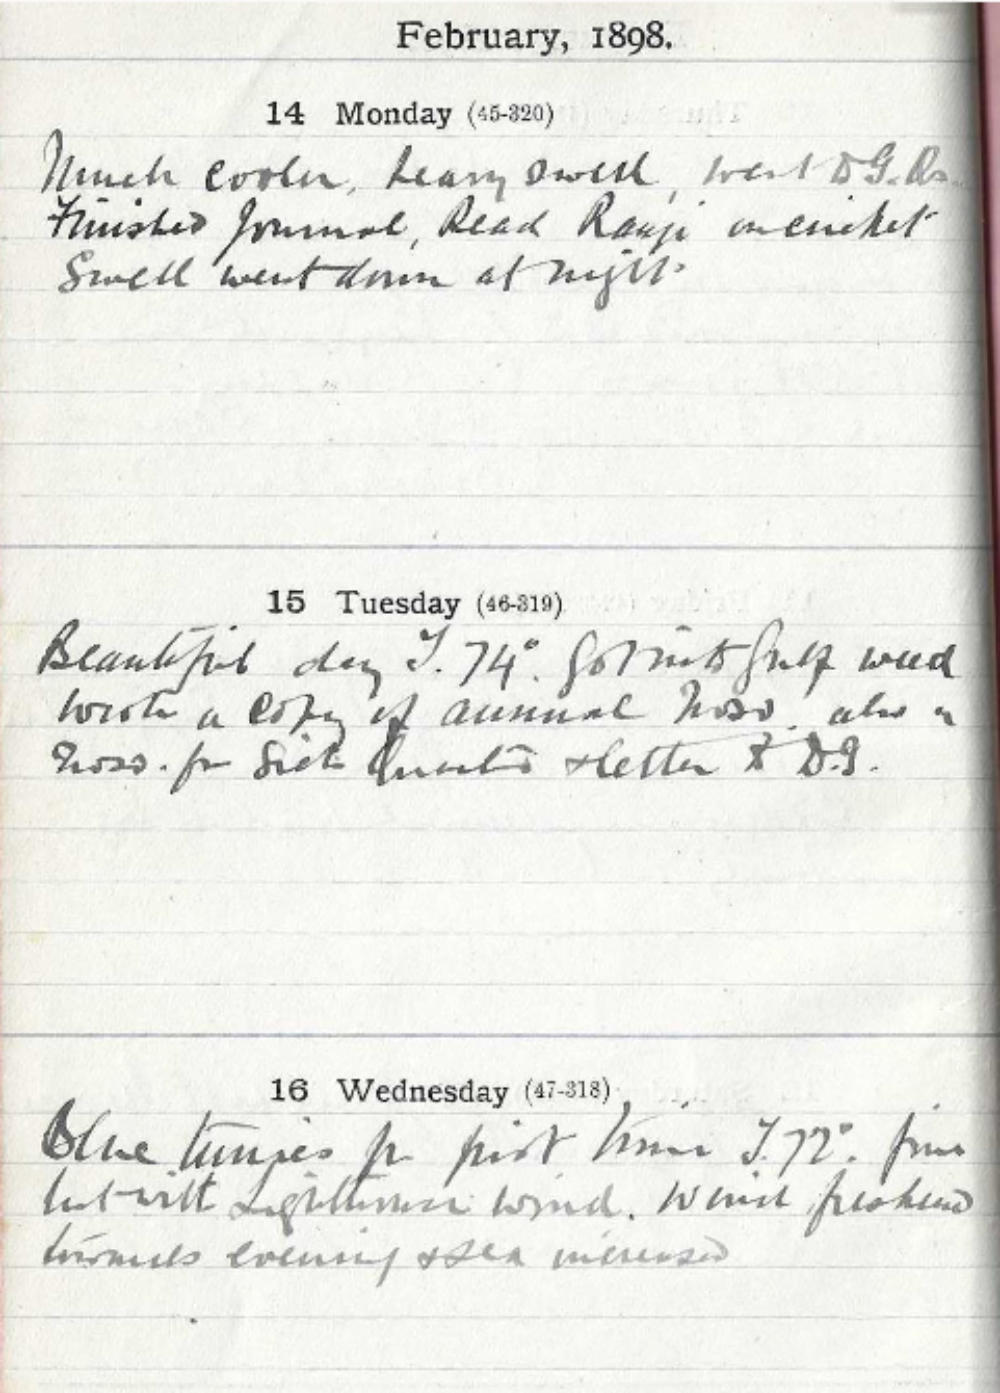 February, 1898.
14 Monday (45-320)
Much cooler, heavy swell, went
Finished Journal, Read Ranji on cricket
Swell went down at night.
15 Tuesday (46-319)
Beautiful day T. 74°. Got into gulf weed
wrote a copy of annual also a
for Sick Quarters & letter to D.G.
16 Wednesday (47-318)
Blue tunics for first time T. 72°. fine
but with wind. Wind freshened
towards evening & sea increased